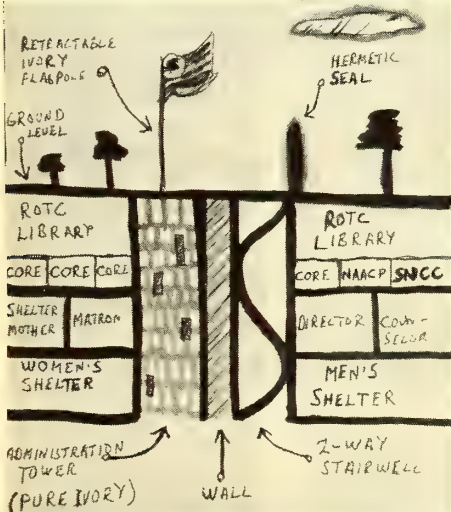 RETRACTABLE
IVORY
FLAGPOLE
HERMETIC
SEAL
GROUND
LEVEL
ROTC
LIBRARY
CORE CORE CORE
SHELTER
MOTHER
MATRON
WOMEN'S
SHELTER
ROTC
LIBRARY
CORE NAACP SNCC
DIRECTOR
COUN-
SELOR
MEN'S
SHELTER
ADMINISTRATION
TOWER
(PURE IVORY)
WALL
2-WAY
STAIRWELL